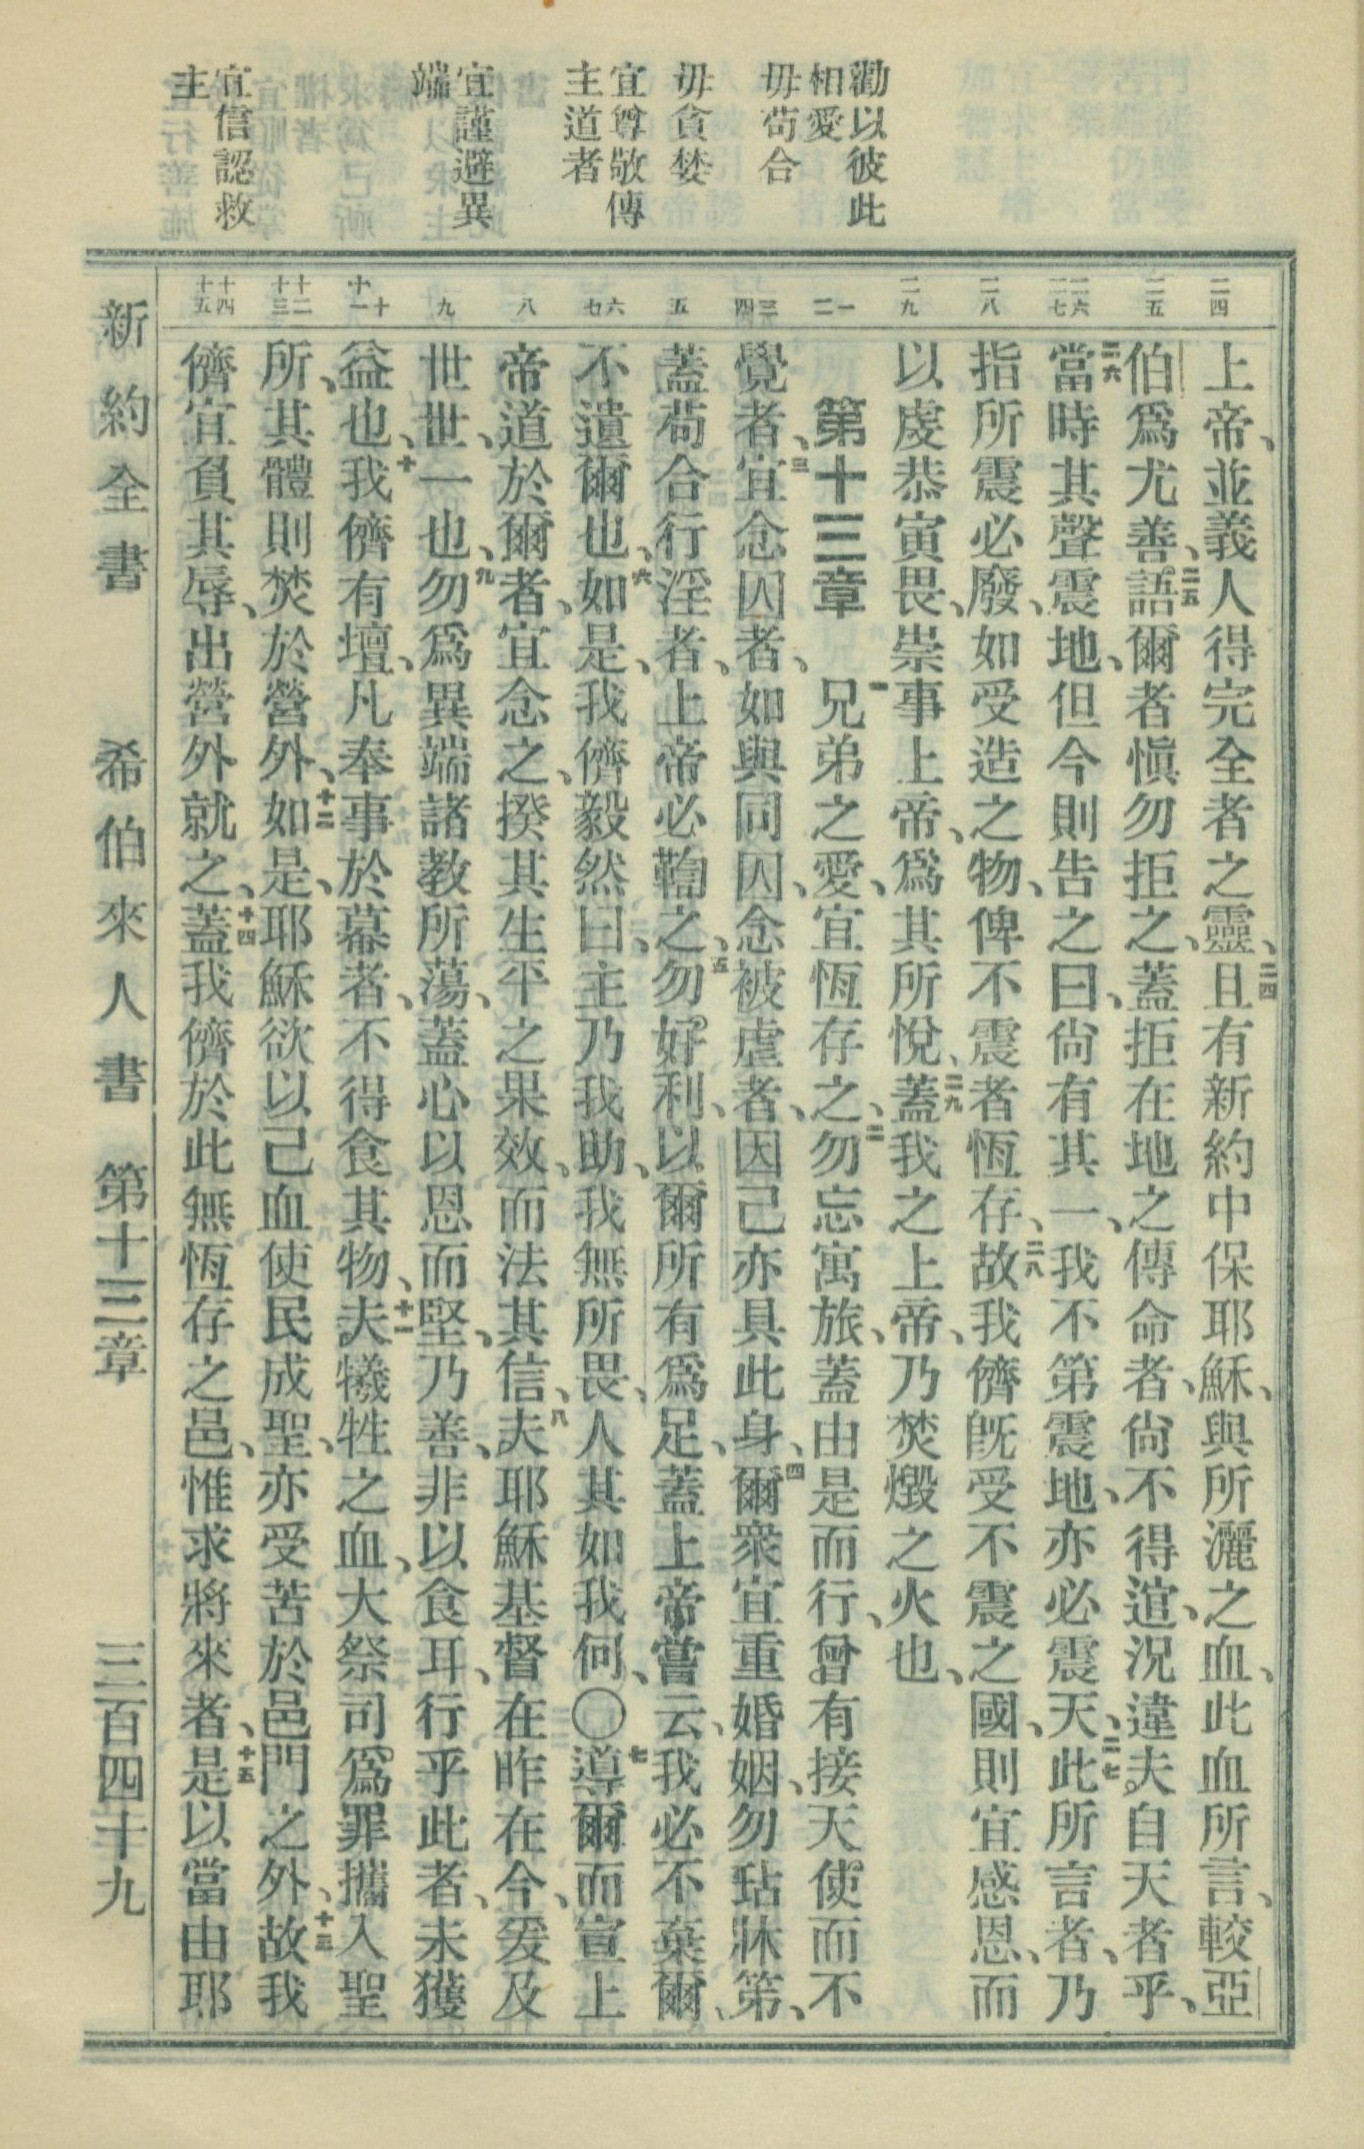 勸以彼此
相愛
毋苟合
毋貪婪
宜尊敬傳
主道者
宜謹避異
端
宜信認救
主
二四
二五
二六
二七
二八
二九
一
二
三
四
五
六
七
八
九
十
十一
十二
十三
十四
十五
上帝、並義人得完全者之靈、二四且有新約中保耶穌、與所灑之血、此血所言、較亞
伯爲尤善、二五語爾者愼勿拒之、蓋拒在地之傳命者、尙不得逭、況違夫自天者乎、
二六當時其聲震地、但今則吿之曰、尙有其一、我不第震地、亦必震天、二七此所言者、乃
指所震必廢、如受造之物、俾不震者恆存、二八故我儕旣受不震之國、則宜感恩、而
以虔恭寅畏、崇事上帝、爲其所悅、二九蓋我之上帝、乃焚燬之火也、
第十三章　一兄弟之愛、宜恆存之、二勿忘寓旅、蓋由是而行、曾有接天使而不
覺者、三宜念囚者、如與同囚、念被虐者、因己亦具此身、四爾衆宜重婚姻、勿玷牀第、
蓋苟合行淫者、上帝必鞫之、五勿好利、以爾所有爲足、蓋上帝嘗云、我必不棄爾、
不遺爾也、六如是、我儕毅然曰、主乃我助、我無所畏、人其如我何、〇七導爾而宣上
帝道於爾者、宜念之、揆其生平之果效、而法其信、八夫耶穌基督在昨在今、爰及
世世、一也、九勿爲異端諸教所蕩、蓋心以恩而堅、乃善、非以食耳、行乎此者、未獲
益也、十我儕有壇、凡奉事於幕者、不得食其物、十一夫犧牲之血、大祭司爲罪攜入聖
所、其體則焚於營外、十二如是、耶穌欲以己血使民成聖、亦受苦於邑門之外、十三故我
儕宜負其辱、出營外就之、十四蓋我儕於此無恆存之邑、惟求將來者、十五是以當由耶
新約全書　希伯來人書　第十三章　三百四十九